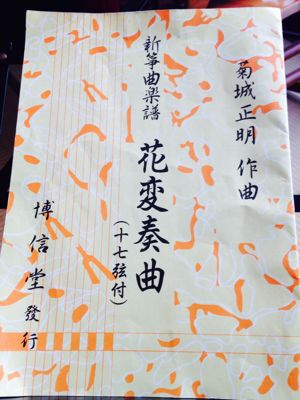 菊城正明 作曲
新箏曲楽譜
花変奏曲
(十七弦付)
博信堂發行